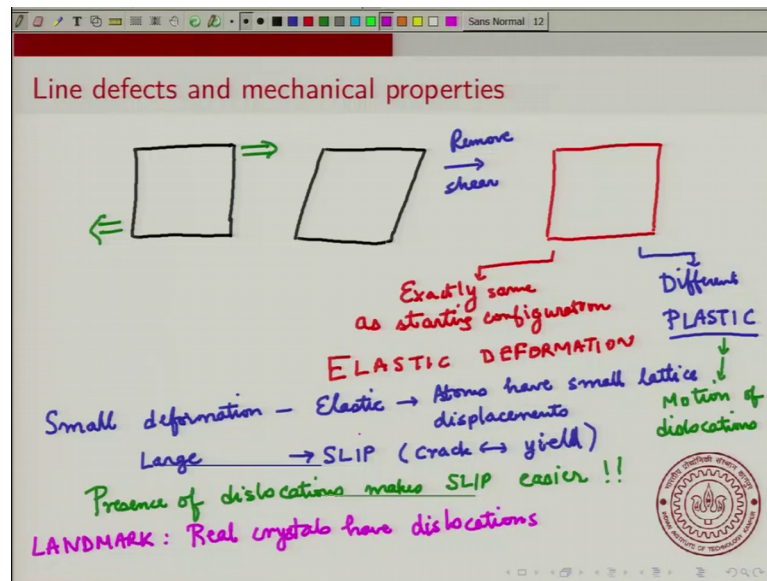 T
Sans Normal 12
Line defects and mechanical properties
Remove
shear
Exactly same
as starting configuration
ELASTIC DEFORMATION
Different
PLASTIC
Motion of
dislocations
Small deformation – Elastic → Atoms have small lattice
displacements
Large → SLIP (Crack ↔ yield)
Presence of dislocations makes SLIP easier !!
LANDMARK : Real crystals have dislocations
INDIAN INSTITUTE OF TECHNOLOGY KANPUR